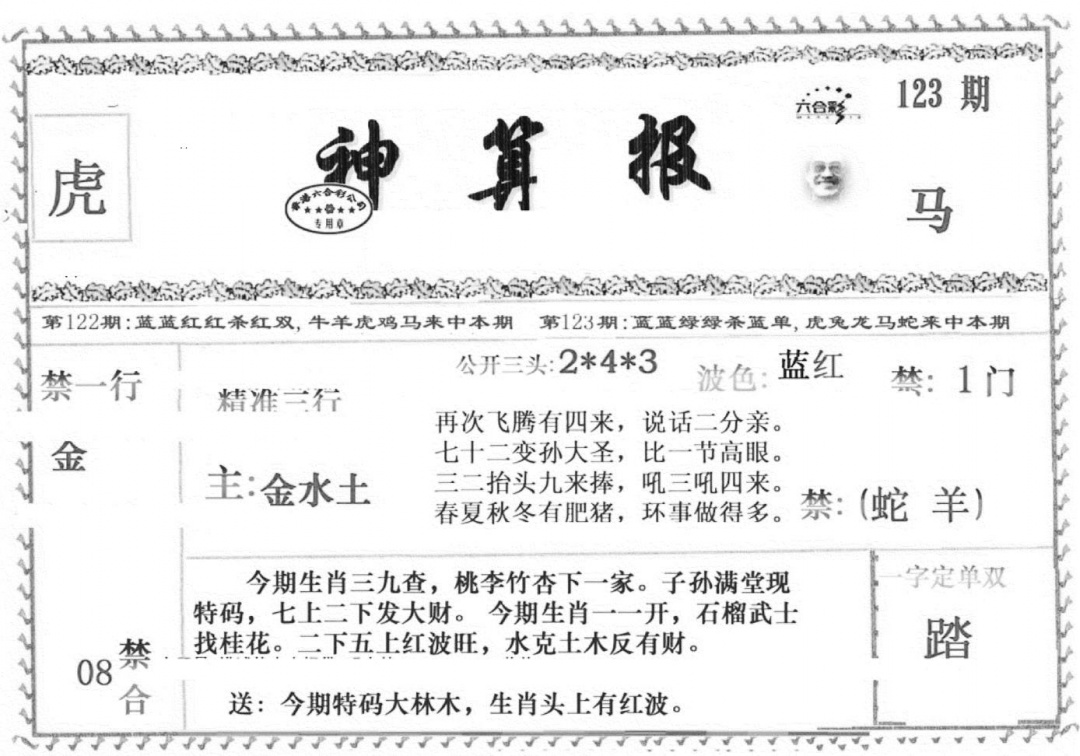 六合彩
123 期
虎
神算报
香港六合彩公司
专用章
马
第122期:蓝蓝红红杀红双, 牛羊虎鸡马来中本期 第123期:蓝蓝绿绿杀蓝单, 虎兔龙马蛇来中本期
公开三头:2*4*3
波色: 蓝红
禁: 1门
禁一行
金
精准三行
主:金水土
再次飞腾有四来，说话二分亲。
七十二变孙大圣，比一节高眼。
三二抬头九来捧，吼三吼四来。
春夏秋冬有肥猪，环事做得多。
禁: (蛇 羊)
今期生肖三九查，桃李竹杏下一家。子孙满堂现
特码，七上二下发大财。 今期生肖一一开，石榴武士
找桂花。二下五上红波旺，水克土木反有财。
送：今期特码大林木，生肖头上有红波。
08
禁合
一字定单双
踏